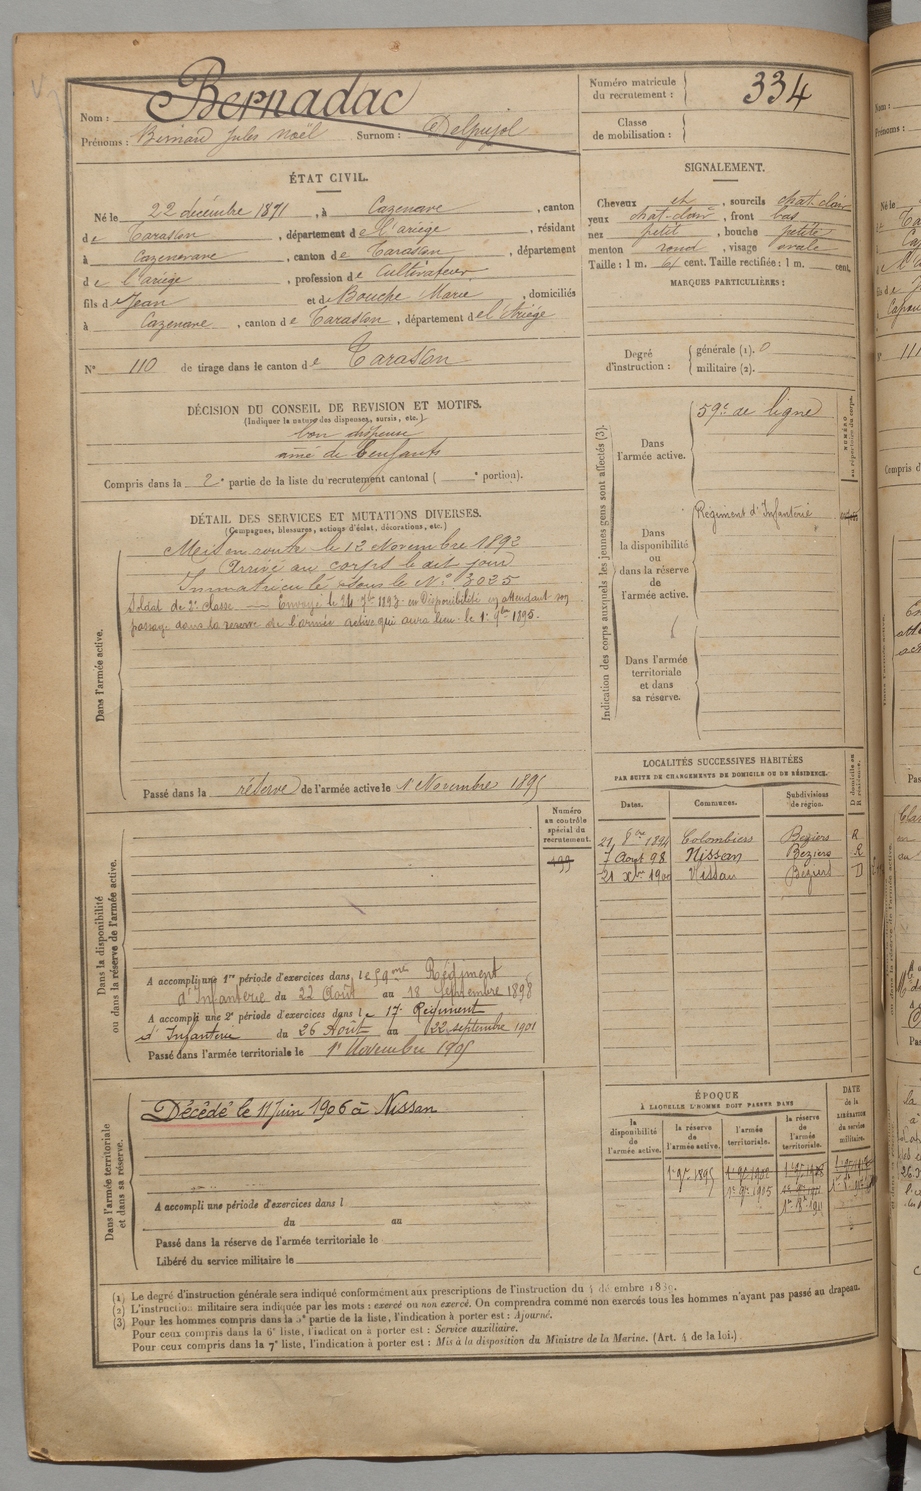 Nom : Bernadac
Prénoms : Bernard Jules Noël Surnom : Delpujol
Numéro matricule du recrutement : 334
Classe de mobilisation :
ÉTAT CIVIL.
Né le 22 décembre 1871, à Cazenave, canton
de Tarascon, département de l'ariège, résidant
à Cazenave, canton de Tarascon, département
de l'ariège, profession de Cultivateur
fils de Jean et de Bouche Marie, domiciliés
à Cazenave, canton de Tarascon, département de l'Ariège
N° 110 de tirage dans le canton de Tarascon
SIGNALEMENT.
Cheveux et, sourcils chat-clair
yeux chat-clair, front bas
nez petit, bouche petite
menton rond, visage ovale
Taille : 1 m. 61 cent. Taille rectifiée : 1 m. cent.
MARQUES PARTICULIÈRES :
Degré d'instruction : générale (1). 0
militaire (2).
DÉCISION DU CONSEIL DE REVISION ET MOTIFS.
(Indiquer la nature des dispenses, sursis, etc.)
bon dispensé
ainé de enfants
Compris dans la 2e partie de la liste du recrutement cantonal ( e portion).
DÉTAIL DES SERVICES ET MUTATIONS DIVERSES.
(Campagnes, blessures, actions d'éclat, décorations, etc.)
Dans l'armée active.
Mis en route le 12 Novembre 1892
Arrivé au corps le dit jour
Immatriculé sous le N° 3025
Soldat de 2e classe — Envoyé le 24 7bre 1893 en Disponibilité en attendant son
passage dans la réserve de l'armée active qui aura lieu le 1er 9bre 1895.
Passé dans la réserve de l'armée active le 1er Novembre 1895
Indication des corps auxquels les jeunes gens sont affectés (3).
NUMÉRO au répertoire du corps.
Dans l'armée active. 59e de ligne
Dans la disponibilité ou dans la réserve de l'armée active.
Régiment d'Infanterie
Dans l'armée territoriale et dans sa réserve.
LOCALITÉS SUCCESSIVES HABITÉES
PAR SUITE DE CHANGEMENTS DE DOMICILE OU DE RÉSIDENCE.
Dates. Communes. Subdivisions de région. D domicile ou R résidence.
21 1894 Colombiers Beziers R
7 Aout 98 Nissan Beziers R
21 Xbre 1900 Nissan Beziers D
Dans la disponibilité ou dans la réserve de l'armée active.
Numéro au contrôle spécial du recrutement.
A accompli une 1re période d'exercices dans le 59me Régiment
d'Infanterie du 22 Août au 18 Septembre 1898
A accompli une 2e période d'exercices dans le 17e Régiment
d'Infanterie du 26 Août au 22 septembre 1901
Passé dans l'armée territoriale le 1er Novembre 1905
Dans l'armée territoriale et dans sa réserve.
Décédé le 11 Juin 1906 à Nissan
A accompli une période d'exercices dans l
du au
Passé dans la réserve de l'armée territoriale le
Libéré du service militaire le
ÉPOQUE
À LAQUELLE L'HOMME DOIT PASSER DANS
la disponibilité de l'armée active. la réserve de l'armée active. l'armée territoriale. la réserve de l'armée territoriale. DATE de la LIBÉRATION du service militaire.
1er 9bre 1895
1er 9bre 1905
(1) Le degré d'instruction générale sera indiqué conformément aux prescriptions de l'instruction du
(2) L'instruction militaire sera indiquée par les mots : exercé ou non exercé. On comprendra comme non exercés tous les hommes n'ayant pas passé au drapeau.
(3) Pour les hommes compris dans la 5e partie de la liste, l'indication à porter est : Ajourné.
Pour ceux compris dans la 6e liste, l'indication à porter est : Service auxiliaire.
Pour ceux compris dans la 7e liste, l'indication à porter est : Mis à la disposition du Ministre de la Marine. (Art. 4 de la loi.)